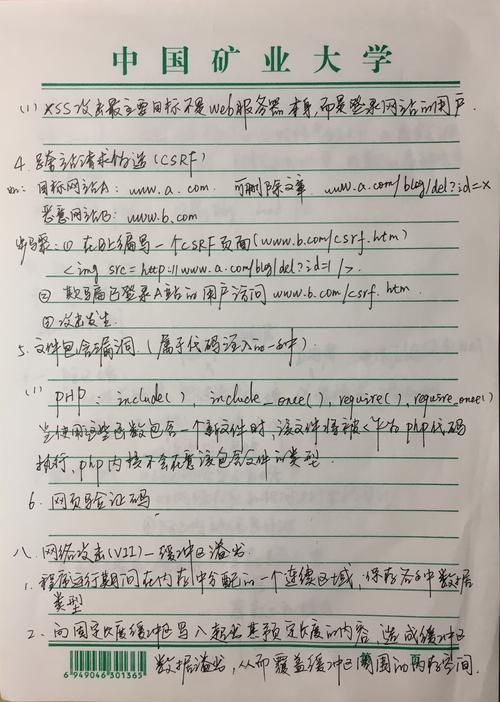 中国矿业大学
(1) XSS攻击最主要目标不是Web服务器本身,而是登录网站的用户.
4. 跨站请求伪造(CSRF)
如: 目标网站A: www.a.com. 可删除文章 www.a.com/blog/del?id=x
恶意网站B: www.b.com
步骤: ① 在B上编写一个CSRF页面(www.b.com/csrf.htm)
<img src=http://www.a.com/blog/del?id=1 />.
② 欺骗已登录A站的用户访问 www.b.com/csrf.htm.
③ 攻击发生.
5. 文件包含漏洞.(属于代码注入的一种).
(1) PHP: include(), include_once(), require(), require_once()
当使用这些函数包含一个新文件时,该文件将被作为php代码
执行,php内核不会在意该包含文件的类型.
6. 网页验证码
八. 网络攻击(VII)—缓冲区溢出.
1. 程序运行期间在内存中分配的一个连续区域,保存各种数据
类型
2. 向固定长度缓冲区写入超出其预定长度的内容,造成缓冲区
数据溢出,从而覆盖缓冲区周围的内存空间.
6949046301365